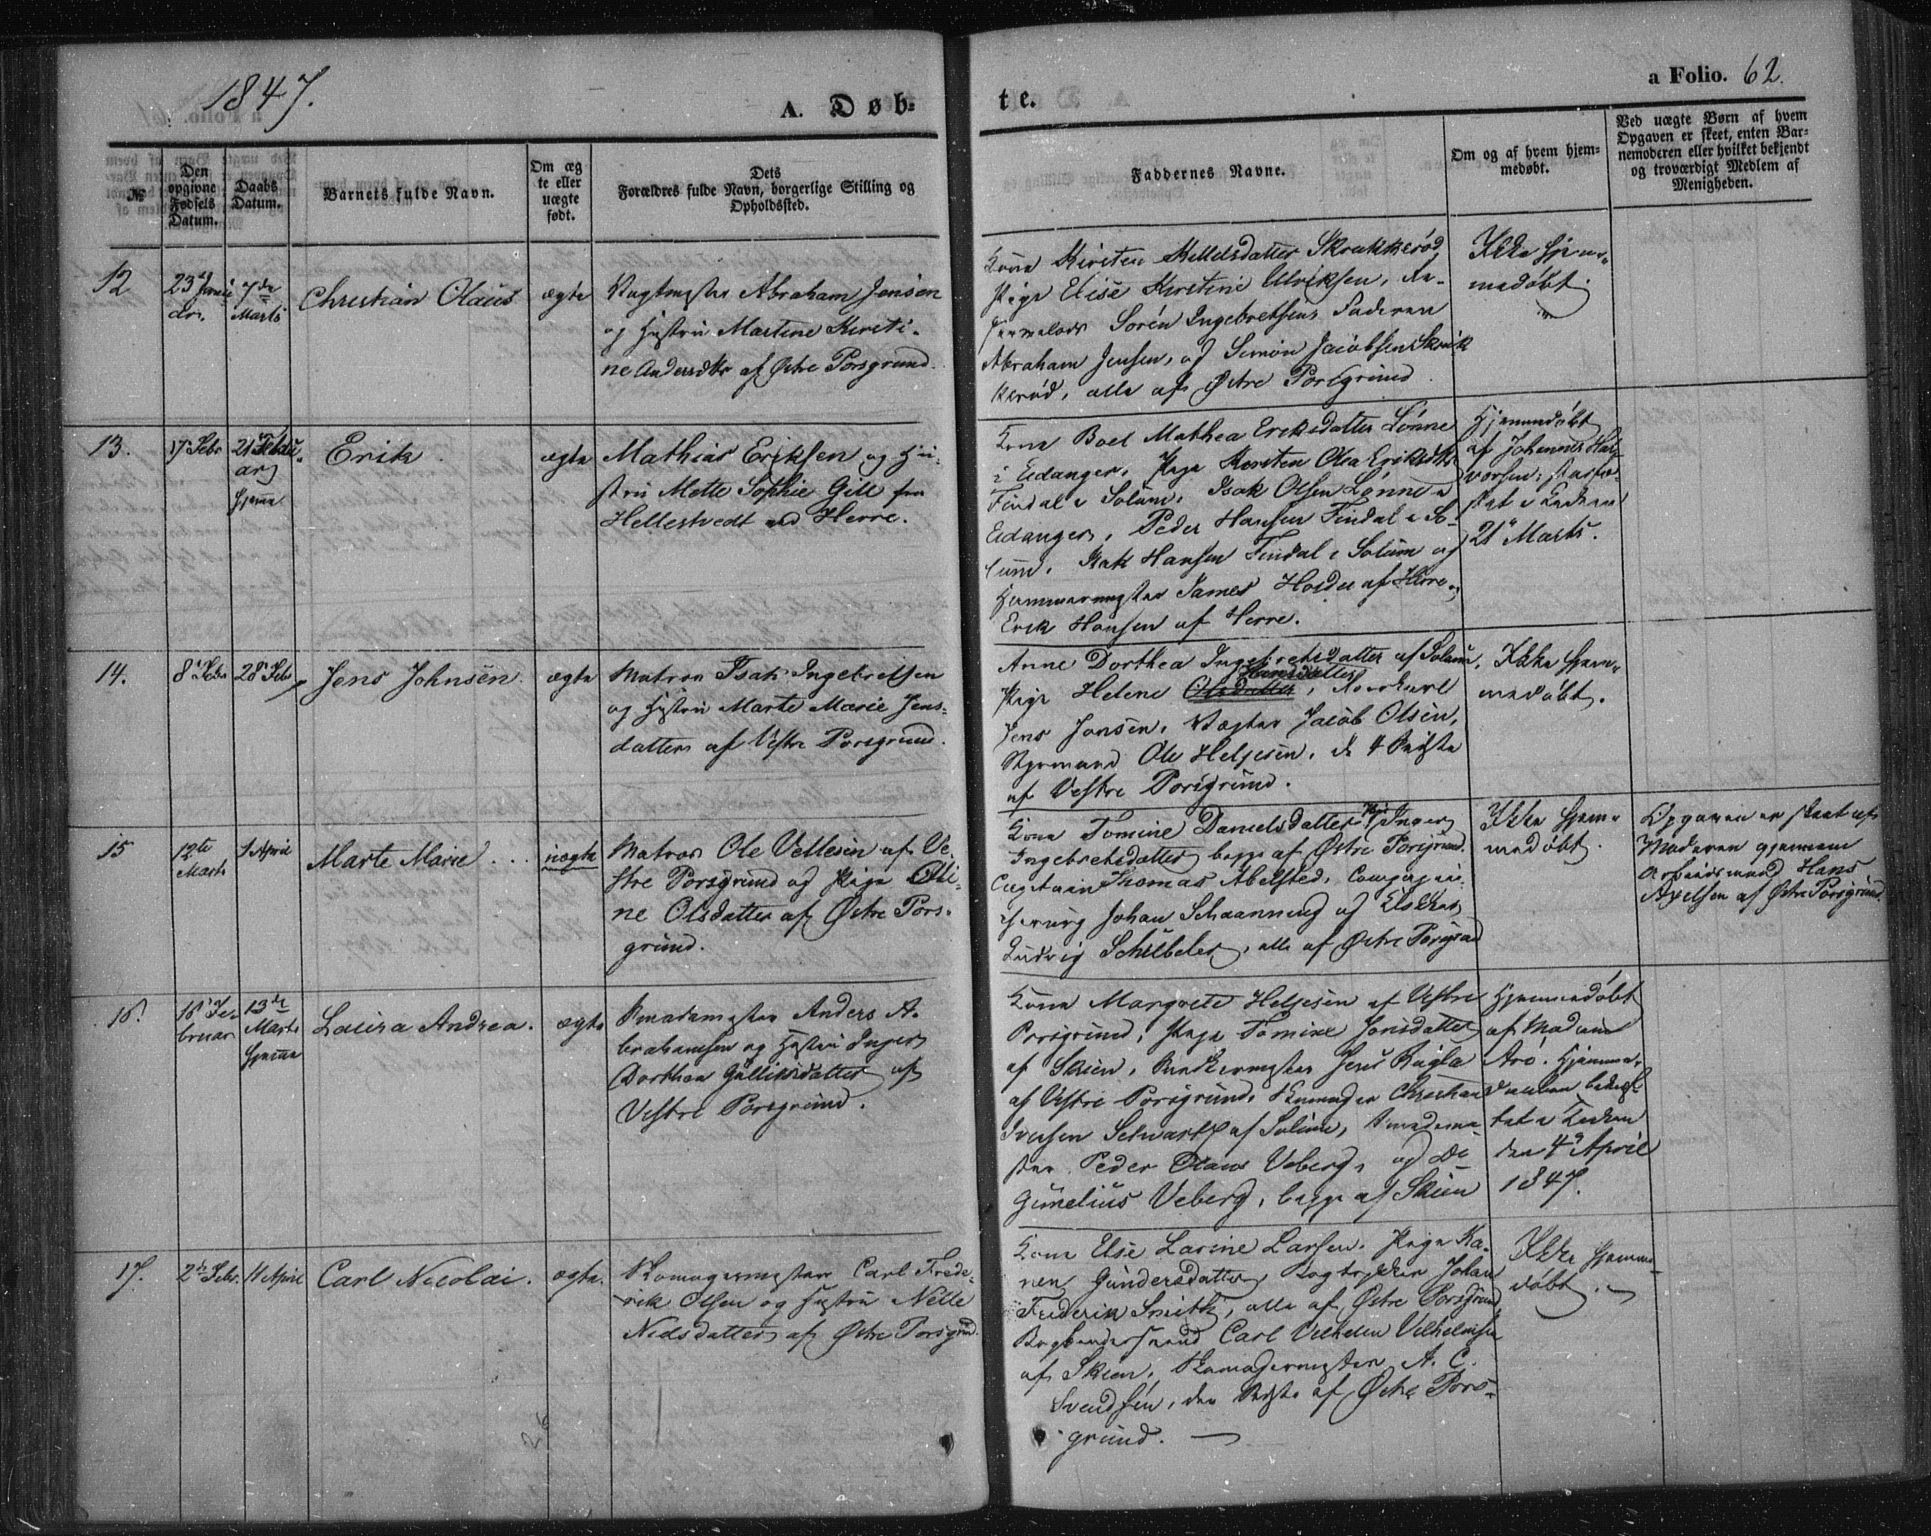 1847.
A. Døb-
te.
a Folio. 62.
№
Den
opgivne
Fødsels
Datum.
Daabs
Datum.
Barnets fulde Navn.
Om æg
te eller
uægte
født.
Dets
Forældres fulde Navn, borgerlige Stilling og
Opholdssted.
Faddernes Navne.
Om og af hvem hjem-
medøbt.
Ved uægte Børn af hvem
Opgaven er skeet, enten Bar-
nemoderen eller hvilket bekjendt
og troværdigt Medlem af
Menigheden.
12
7de
Marts
Christian Olaus
ægte
Abraham Jensen
og Hustru Martine Kirsti-
ne Andersdtr af Østre Porsgrund.
Kone Kirsten Kittelsdatter Skrukkerød
Pige Elise Kirstine Ulriksen,
Søren Ingebretsen, Faderen
Abraham Jensen, og Simon Jacobsen Skruk
kerød, alle af Østre Porsgrund.
Ikke hjem-
medøbt.
13.
17 Febr
21 Febru-
ar
hjemme
Erik
ægte
Mathias Eriksen og Hu-
stru Mette Sophie Gill fra
Hellestvedt ved Herre.
Kone Boel Mathea Eriksdatter Lønne
i Eidanger, Pige Kirsten Olea Eriksdtr
Findal i Solum, Isak Olsen Lønne i
Eidanger, Peder Hansen Findal i So-
lum, Isak Hansen Findal i Solum og
Hammermester James Horder af Herre og
Erik Hansen af Herre.
Hjemmedøbt
af Johannes Hal-
vorsen,
i Kirken
21 Marts.
14.
8 Febr
28 Febr
Jens Johnsen.
ægte
Matros Isak Ingebretsen
og Hustru Marte Marie Jens-
datter af Vestre Porsgrund.
Anne Dorthea Ingebretsdatter af Solum,
Hansdatter
Pige Helene Olsdatter,
Jens Jonsen, Jacob Olsen,
Styrmand Ole Helgesen, de 4 Sidste
af Vestre Porsgrund.
Ikke hjem-
medøbt.
15
12te
Marts
1 April
Marte Marie
uægte
Matros Ole Vetlesen af Ve-
stre Porsgrund og Pige Oli-
ne Olsdatter af Østre Pors-
grund.
Kone Tomine Danielsdatter, Pige Inger
Ingebretsdatter begge af Østre Porsgrund.
Captain Thomas Abelsted,
Johan Schaanning og
Ludvig Schübeler, alle af Østre Porsgrund
Ikke hjem-
medøbt.
Opgaven er skeet af
Moderen gjennem
Arbeidsmand Hans
Axelsen af Østre Porsgrund.
16.
16 Fe-
bruar
13de
Marts
hjemme
Laura Andrea.
ægte
Anders A-
brahamsen og Hustru Inger
Dorthea Gulliksdatter af
Vestre Porsgrund.
Kone Margrete Helgesen af Vestre
Porsgrund, Pige Tomine Jonsdatter
af Skien, Jens
af Vestre Porsgrund, Christian
Iversen Schwartz af Solum,
Peder Olaus Veberg, og
Veberg, begge af Skien
Hjemmedøbt
af Madame
Arø. Hjemme-
daaben bekræf-
tet i Kirken
den 4 April
1847.
17.
2 Febr.
11 April
Carl Nicolai.
ægte.
Skomagermester Carl Frede-
rik Olsen og Hustru Nelle
Nielsdatter af Østre Porsgrund.
Kone Else Larine Larsen, Pige Ka-
ren Gundersdatter, Bogtrykker Johan
Frederik Smith, alle af Østre Porsgrund,
Bogbindersvend Carl Vilhelm Vilhelmsen
af Skien, Skomagermester A. C.
Svendsen, den Sidste af Østre Pors-
grund.
Ikke hjemme-
døbt.